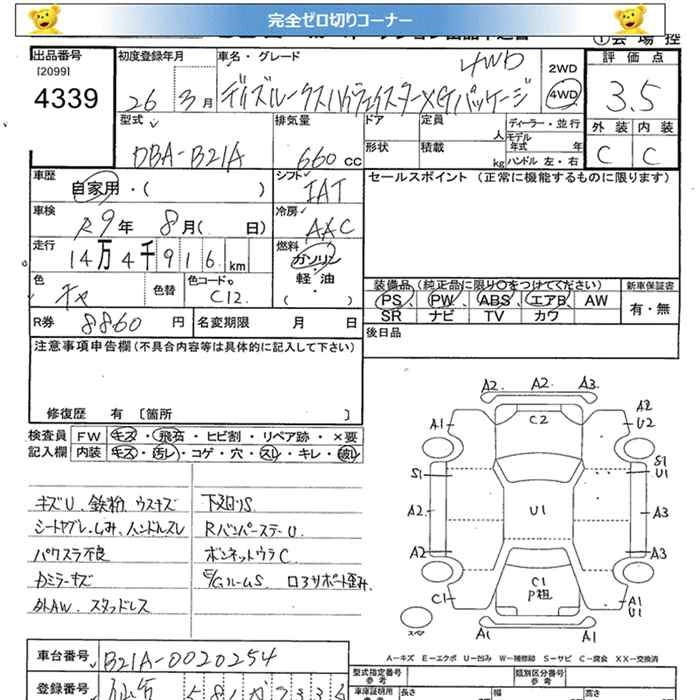 完全ゼロ切りコーナー
①会場控
出品番号
[2099]
4339
初度登録年月
26年 3月
車名・グレード
4WD
デイズルークスハイウェイスターXGパッケージ
2WD
4WD
評価点
3.5
外装 内装
C C
型式
DBA-B21A
排気量
660cc
ドア
形状
定員
人
積載
kg
ディーラー・並行
モデル年式 年
ハンドル 左・右
車歴
自家用・( )
シフト
IAT
セールスポイント (正常に機能するものに限ります)
車検
R9年 8月( 日)
冷房
AAC
走行
14万4千916km
燃料
ガソリン
軽・油
( )
色
チャ
色替
色コードNo
C12
装備品(純正品に限り○をつけてください)
PS PW ABS エアB AW
SR ナビ TV カワ
新車保証書
有・無
R券 8860円
名変期限 月 日
後日品
注意事項申告欄(不具合内容等は具体的に記入して下さい)
修復歴 有 [箇所 ]
検査員 FW キズ・飛石・ヒビ割・リペア跡・×要
記入欄 内装 キズ・汚レ・コゲ・穴・スレ・キレ・破レ
キズU、鉄粉、ウスキズ
下廻りS
シートヤブレ、しみ、ハンドルスレ
RバンパーステーU
パワスラ不良
ボンネットウラC
カミラーキズ
E/GルームS ロアサポート歪み
外AW、スタッドレス
A2 A2 A3
A1 C2 A2 U2
S1 S1 U1
A2 U1 A3
A2 A3
C1 C1 P粗 A1 U1
A1 A1
A-キズ E-エクボ U-凹み W-補修跡 S-サビ C-腐食 XX-交換済
車台番号 B21A-0020254
登録番号 仙台 581
型式指定番号
参考
類別区分番号
参考
車庫証明用
参考
長さ 幅 高さ